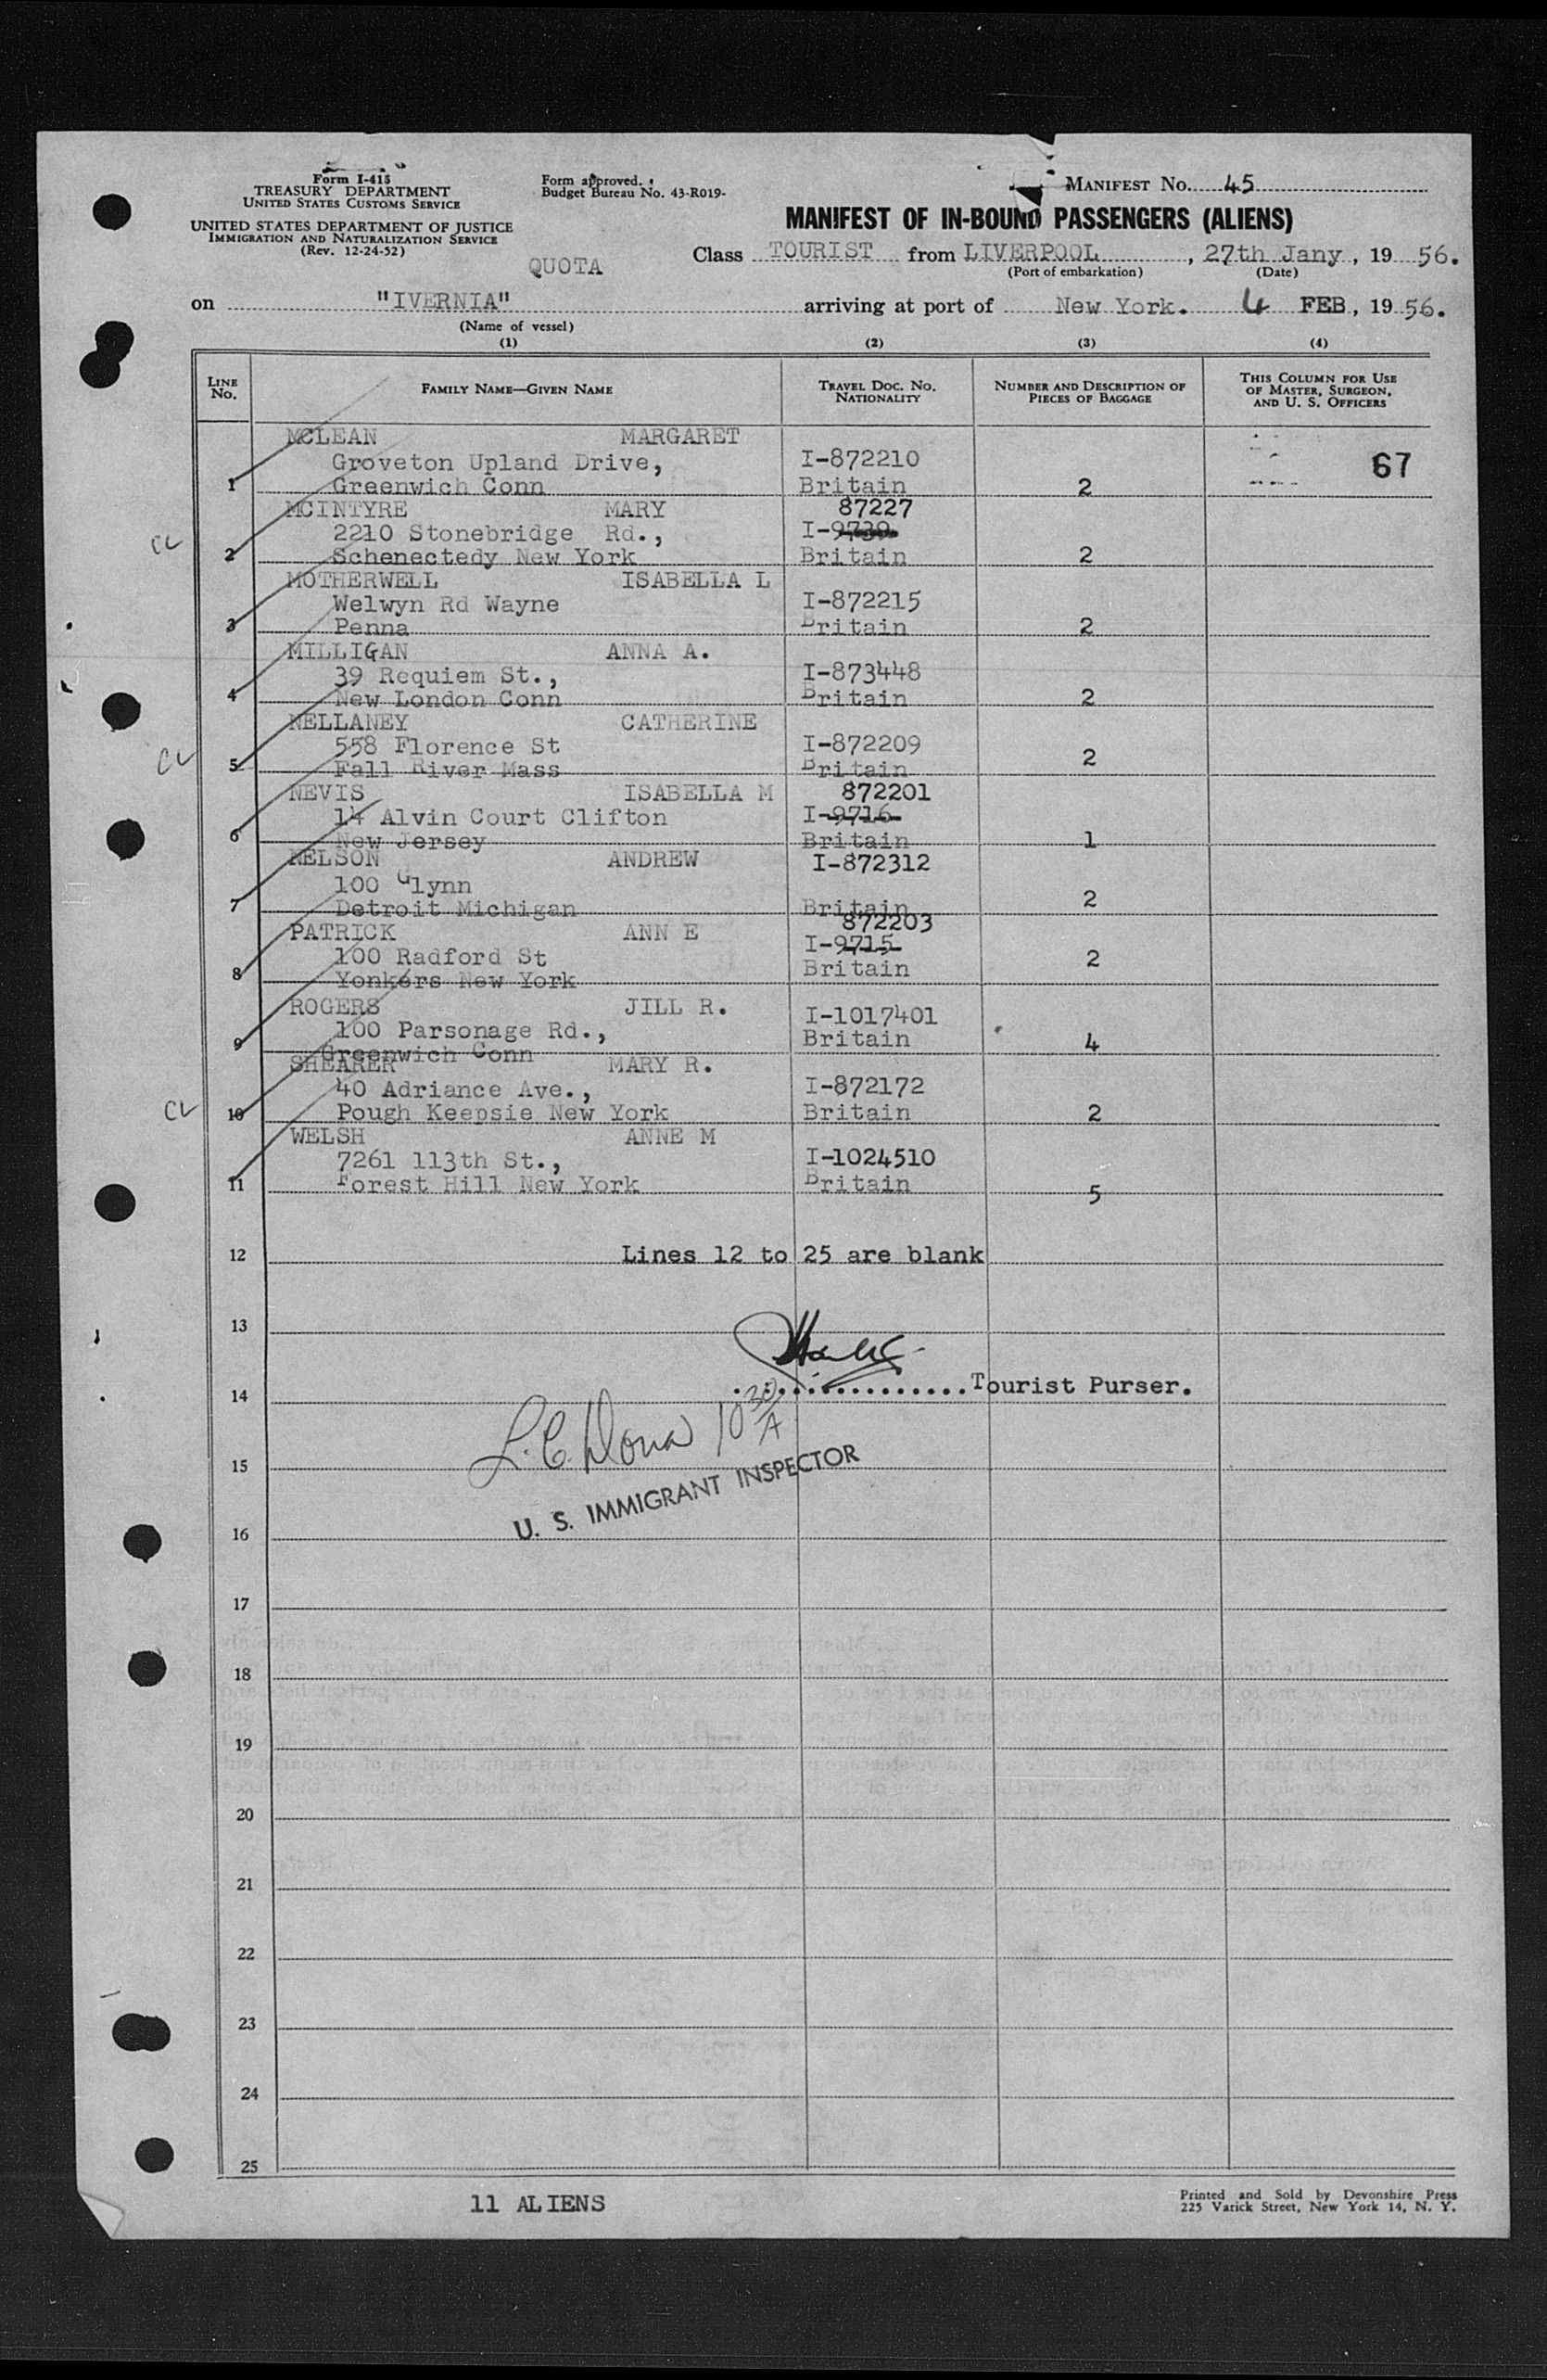 Form I-415
TREASURY DEPARTMENT
UNITED STATES CUSTOMS SERVICE
UNITED STATES DEPARTMENT OF JUSTICE
IMMIGRATION AND NATURALIZATION SERVICE
(Rev. 12-24-52)
Form approved.
Budget Bureau No. 43-R019-
MANIFEST No. 45
MANIFEST OF IN-BOUND PASSENGERS (ALIENS)
QUOTA
Class TOURIST from LIVERPOOL, 27th Jany, 19 56.
(Port of embarkation) (Date)
on "IVERNIA" arriving at port of New York. 4 FEB, 19 56.
(Name of vessel)
(1) (2) (3) (4)
LINE No. FAMILY NAME—GIVEN NAME TRAVEL DOC. NO. NATIONALITY NUMBER AND DESCRIPTION OF PIECES OF BAGGAGE THIS COLUMN FOR USE OF MASTER, SURGEON, AND U. S. OFFICERS
MCLEAN MARGARET
Groveton Upland Drive, I-872210 67
1 Greenwich Conn Britain 2
MCINTYRE MARY 87227
CL 2210 Stonebridge Rd., I-9739
2 Schenectedy New York Britain 2
MOTHERWELL ISABELLA L
Welwyn Rd Wayne I-872215
3 Penna Britain 2
MILLIGAN ANNA A.
39 Requiem St., I-873448
4 New London Conn Britain 2
NELLANEY CATHERINE
558 Florence St I-872209
CL 5 Fall River Mass Britain 2
NEVIS ISABELLA M 872201
14 Alvin Court Clifton I-9716
6 New Jersey Britain 1
NELSON ANDREW I-872312
100 Glynn
7 Detroit Michigan Britain 2
PATRICK ANN E 872203
100 Radford St I-9715
8 Yonkers New York Britain 2
ROGERS JILL R. I-1017401
100 Parsonage Rd., Britain
9 Greenwich Conn 4
SHEARER MARY R.
40 Adriance Ave., I-872172
CL 10 Pough Keepsie New York Britain 2
WELSH ANNE M
7261 113th St., I-1024510
11 Forest Hill New York Britain 5
12 Lines 12 to 25 are blank
13
14 Tourist Purser.
L. C. Dona 10 30/A
15
U. S. IMMIGRANT INSPECTOR
16
17
18
19
20
21
22
23
24
25
11 ALIENS
Printed and Sold by Devonshire Press
225 Varick Street, New York 14, N. Y.